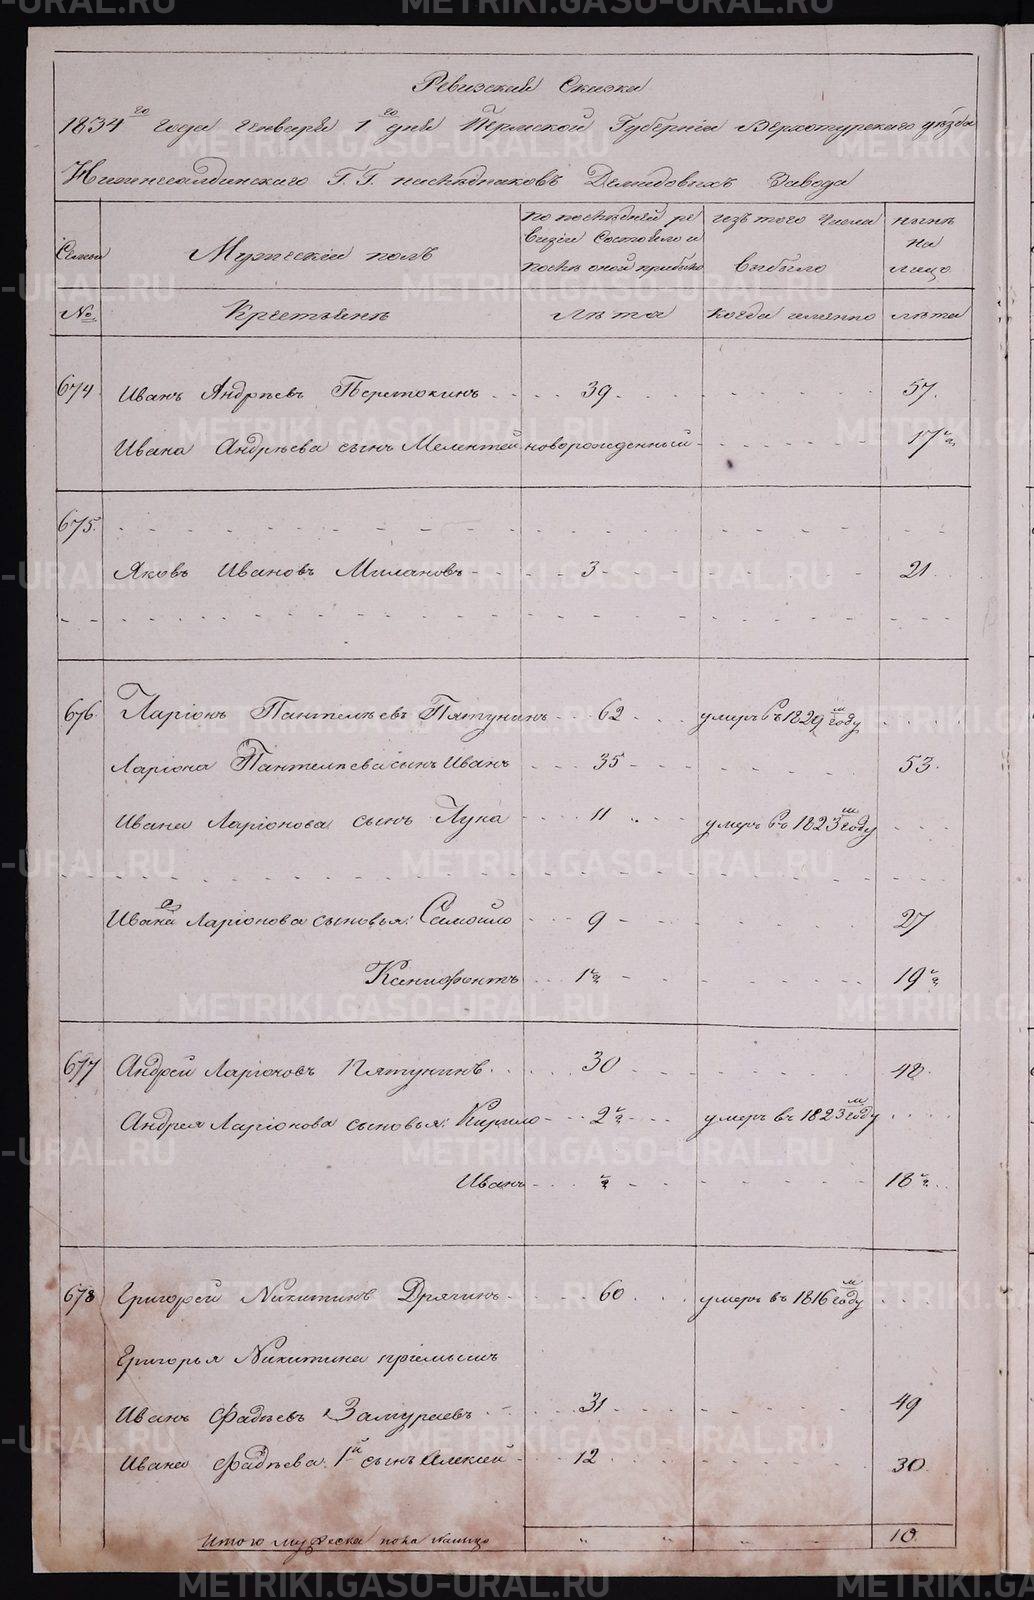 Ревизская Сказка
1834го года Генваря 1го дня Пермской Губерніи Верхотурскаго уѣзда
Нижнесалдинскаго Г.Г. наслѣдниковъ Демидовыхъ Завода
Семьи
Мужескій полъ
по послѣдней ре
визіи состояло и
послѣ оной прибыло
изъ того числа
выбыло
нынѣ
на
лицо
№
Крестьянъ
Лѣта
Когда именно
лѣта
674. Иванъ Андрѣевъ Перетокинъ 39 57.
Ивана Андрѣева сынъ Мелентей новорожденный 17 ½
675.
Яковъ Ивановъ Милановъ 3 21.
676. Ларіонъ Пантелѣевъ Пятунинъ 62 умеръ въ 1829м году
Ларіона Пантелѣева сынъ Иванъ 35 53.
Ивана Ларіонова сынъ Лука 11 умеръ въ 1823м году
Ивана Ларіонова сыновья: Самойло 9 27
Ксенофонтъ 1 ½ 19 ½
677 Андрей Ларіоновъ Пятунинъ 30 48.
Андрея Ларіонова сыновья: Кирило 2 ½ умеръ въ 1823м году
Иванъ ½ 18 ½
678 Григорей Никитинъ Дрягинъ 60 умеръ въ 1816м году
Григорья Никитина пріемышъ
Иванъ Фадѣевъ Замураевъ 31 49
Ивана Фадѣева 1й сынъ Алексей 12 30.
Итого мужеска пола налицо 10.
METRIKI.GASO-URAL.RU